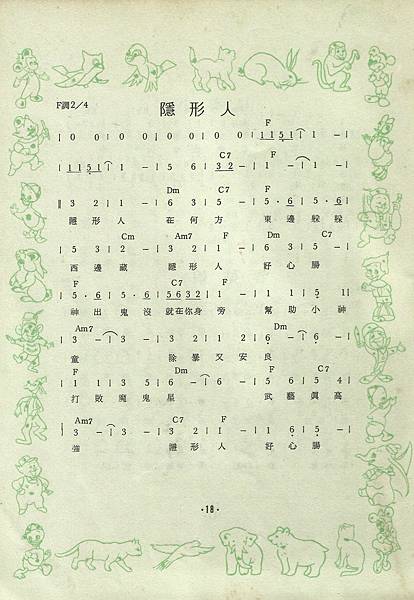 F調2/4 隱形人
F
| 0 0 | 0 0 | 0 0 | 0 0 | 0 0 | 0 0 | 1 1 5 1 | 1 — |
C7 F
| 1 1 5 1 | 1 — | 5 6 | 3 2 — | 1 — | 1 — |
Dm C7 F
‖ 3 2 | 1 — | 6 3 | 5 — | 5 · 6 | 5 · 6 |
隱形人 在何方 東邊躲躲
Cm Am7 F Dm C7
| 5 3 | 2 — | 3 2 | 1 — | 6 3 | 5 — |
西邊藏 隱形人 好心腸
F C7 F
| 5 · 6 | 5 · 6 | 5 6 3 2 | 1 — | 1 1 | 5 1 |
神出鬼沒就在你身旁 幫助小神
Am7 Dm
| 3 — | 3 — | 1 3 | 2 1 | 6 — | 6 — |
童 除暴又安良
F Dm C7
| 1 1 | 3 5 | 6 — | 6 — | 5 6 | 5 4 |
打敗魔鬼星 武藝眞高
Am7 C7 F
| 3 — | 3 — | 3 2 | 1 — | 6 5 | 1 — |
強 隱形人 好心腸
·18·